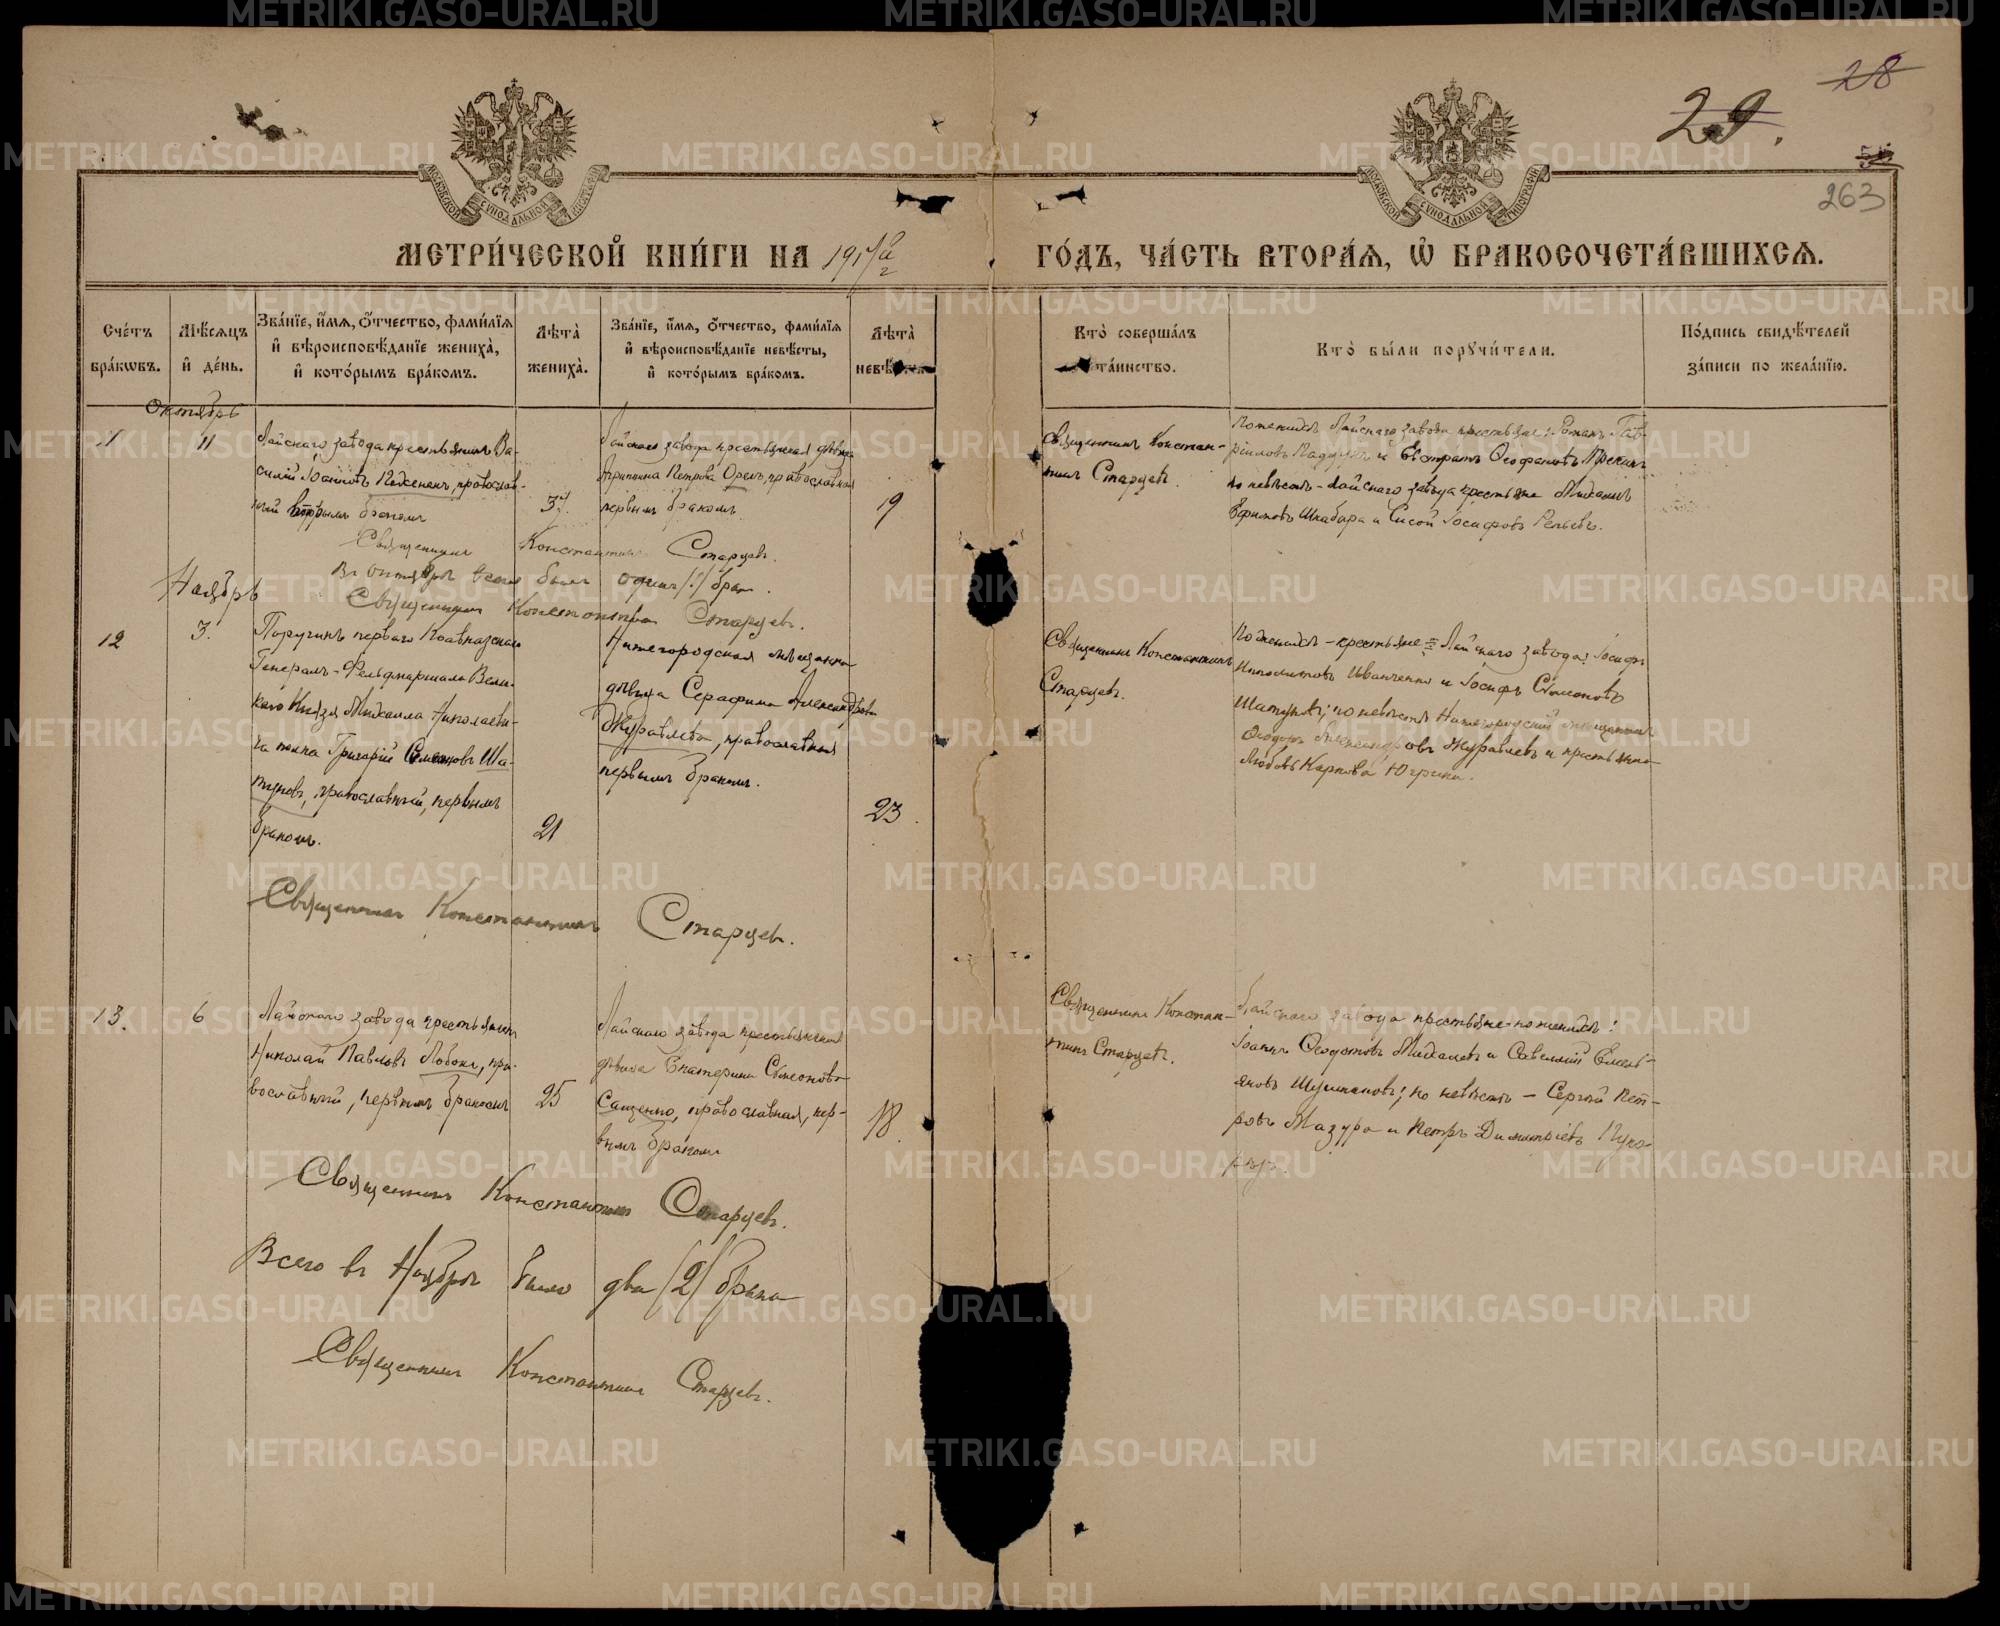 28
29.
263
МЕТРИ́ЧЕСКОЙ КНИ́ГИ НА 1917
ГО́ДЪ, ЧА́СТЬ ВТОРА́Я, Ѡ҆ БРАКОСОЧЕТА́ВШИХСЯ.
Сче́тъ бра́кѡвъ.
Мѣ́сяцъ и҆ де́нь.
Зва́нїе, и҆́мя, ѻ҆́тчество, фами́лїя и҆ вѣроисповѣ́данїе жениха̀, и҆ кото́рымъ бра́комъ.
Лѣта̀ жениха̀.
Зва́нїе, и҆́мя, ѻ҆́тчество, фами́лїя и҆ вѣроисповѣ́данїе невѣ́сты, и҆ кото́рымъ бра́комъ.
Лѣта̀
Кто̀ соверша́лъ та́инство.
Кто̀ бы́ли порꙋчи́тели.
По́дпись свидѣ́телей за́писи по жела́нїю.
Октябрь
11
Лайскаго завода крестьянинъ Ва-
силій Іоанновъ православ-
ный вторымъ бракомъ
37
Лайскаго завода крестьянская дѣвица
Петрова Орелъ, православная
первымъ бракомъ.
19
Священникъ Констан-
тинъ Старцевъ.
По женихѣ Лайскаго завода крестьяне: Романъ Гав-
риловъ и Евстратъ Ѳеофановъ
по невѣстѣ - Лайскаго завода крестьяне Михаилъ
Ефимовъ Шкабара и Сисой Іосифовъ
Священникъ Константинъ Старцевъ.
Въ октябрѣ всего былъ одинъ /1/ бракъ.
Священникъ Константинъ Старцевъ.
Ноябрь
12
3.
Поручикъ перваго Кавказскаго
Генералъ-Фельдмаршала Вели-
каго Князя Михаила Николаеви-
ча полка Григорій Симеоновъ Ша-
туновъ, православный, первымъ
бракомъ.
21
Нижегородская мѣщанка
дѣвица Серафима Александрова
Журавлева, православная
первымъ бракомъ.
23.
Священникъ Константинъ
Старцевъ.
По женихѣ - крестьяне Лайскаго завода: Іосифъ
Ипполитовъ Иванченко и Іосифъ Симеоновъ
Шатуновъ; по невѣстѣ Нижегородскій мѣщанинъ
Ѳеодоръ Александровъ Журавлевъ и крестьянка
Любовь Карпова Югрина.
Священникъ Константинъ Старцевъ.
13.
6
Лайскаго завода крестьянинъ
Николай Павловъ Лобокъ, пра-
вославный, первымъ бракомъ
25
Лайскаго завода крестьянская
дѣвица Екатерина Симеонова
Сащенко, православная, пер-
вымъ бракомъ
18.
Священникъ Констан-
тинъ Старцевъ.
Лайскаго завода крестьяне - по женихѣ:
Іоаннъ Ѳедотовъ Михалевъ и Савелій Емель-
яновъ Шушкановъ; по невѣстѣ - Сергій Пет-
ровъ Мазура и Петръ Димитріевъ
Священникъ Константинъ Старцевъ.
Всего въ Ноябрѣ было два /2/ брака
Священникъ Константинъ Старцевъ.
METRIKI.GASO-URAL.RU